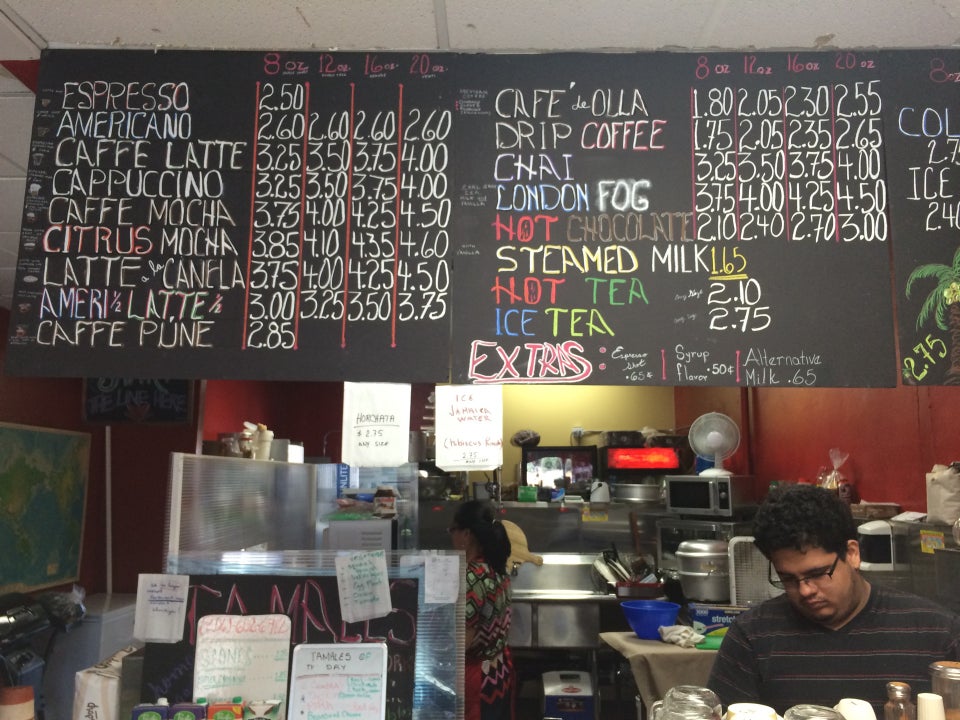 8 oz. 12 oz. 16 oz. 20 oz.
ESPRESSO 2.50
AMERICANO 2.60 2.60 2.60 2.60
CAFFE LATTE 3.25 3.50 3.75 4.00
CAPPUCCINO 3.25 3.50 3.75 4.00
CAFFE MOCHA 3.75 4.00 4.25 4.50
CITRUS MOCHA 3.85 4.10 4.35 4.60
LATTE a la CANELA 3.75 4.00 4.25 4.50
AMERI ½ LATTE ½ 3.00 3.25 3.50 3.75
CAFFE PUNE 2.85
8 oz 12 oz 16 oz 20 oz
CAFE' de OLLA 1.80 2.05 2.30 2.55
DRIP COFFEE 1.75 2.05 2.35 2.65
CHAI 3.25 3.50 3.75 4.00
LONDON FOG 3.75 4.00 4.25 4.50
HOT CHOCOLATE 2.10 2.40 2.70 3.00
STEAMED MILK 1.65
HOT TEA 2.10
ICE TEA 2.75
EXTRAS: Espresso Shot .65¢ Syrup flavor .50¢ Alternative Milk .65
8 oz
COL
2.7
ICE
2.40
2.75
THE LINE HERE
HORCHATA
$ 2.75
ANY SIZE
ICE
JAMAICA
WATER
(hibiscus
2.75
TAMALES
SCONES
TAMALES OF
DAY